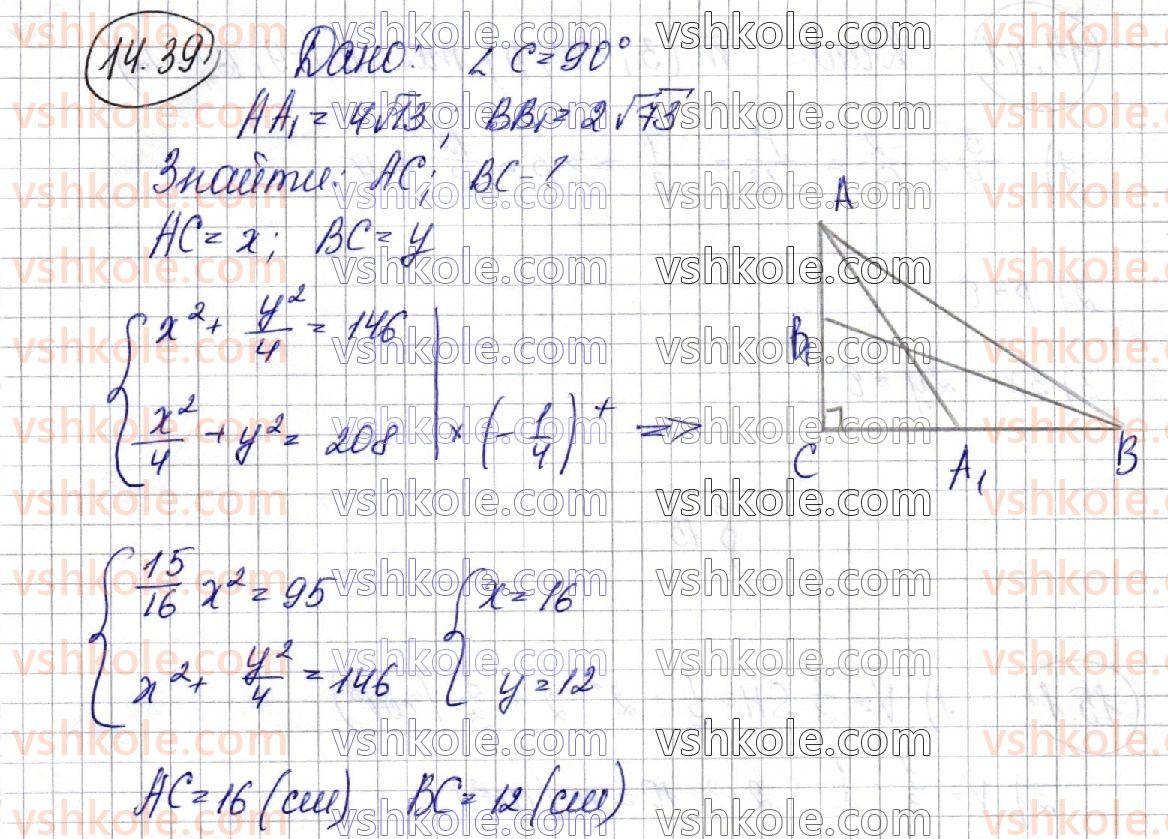 14.39 Дано: ∠C=90°
AA₁=4√13; BB₁=2√73
Знайти: AC; BC-?
AC=x; BC=y
{ x² + y²/4 = 146
{ x²/4 + y² = 208 | × (-1/4) + =>
{ 15/16 x² = 95
{ x² + y²/4 = 146
{ x=16
{ y=12
AC=16 (см) BC=12 (см)
A
B₁
C
A₁
B
vshkole.com